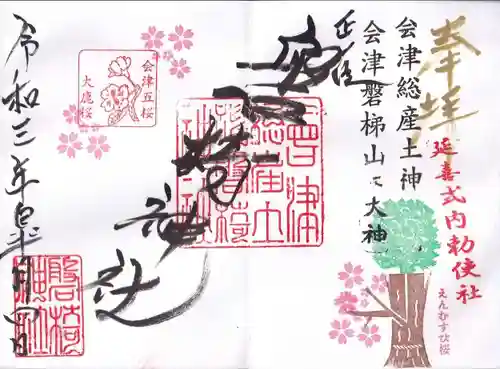 奉拝
延喜式内勅使社
えんむすび桜
会津総産土神
会津磐梯山大神
正一位
磐椅神社
会津五桜
大鹿桜
令和三年皐月四日